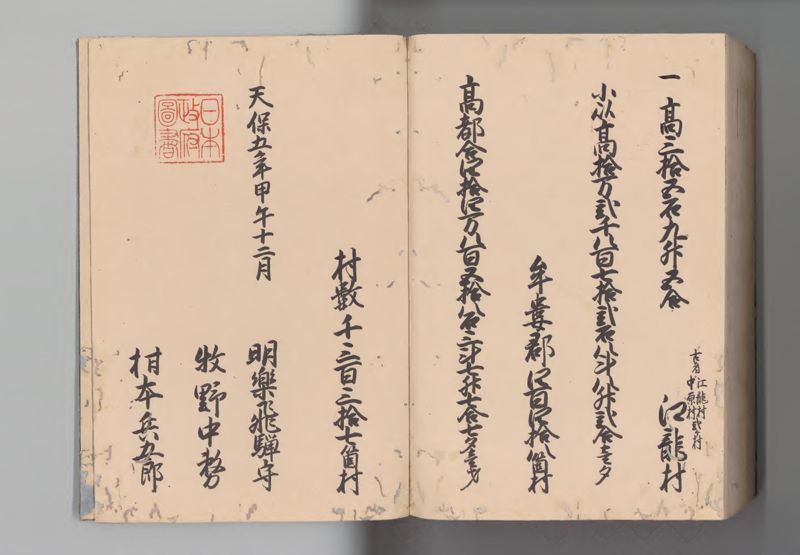 一 高三拾五石九升五合
古者 江龍村 中原村 弐ケ村
江龍村
小以高拾万弐千八百七拾弐石八斗八升弐合壱夕
牟婁郡四百四拾八箇村
高都合四拾四万八百五拾八石三斗七升七合七夕壱才
村数千三百三拾七箇村
天保五年甲午十二月
明樂飛騨守
牧野中務
柑本兵五郎
日本
政府
圖書